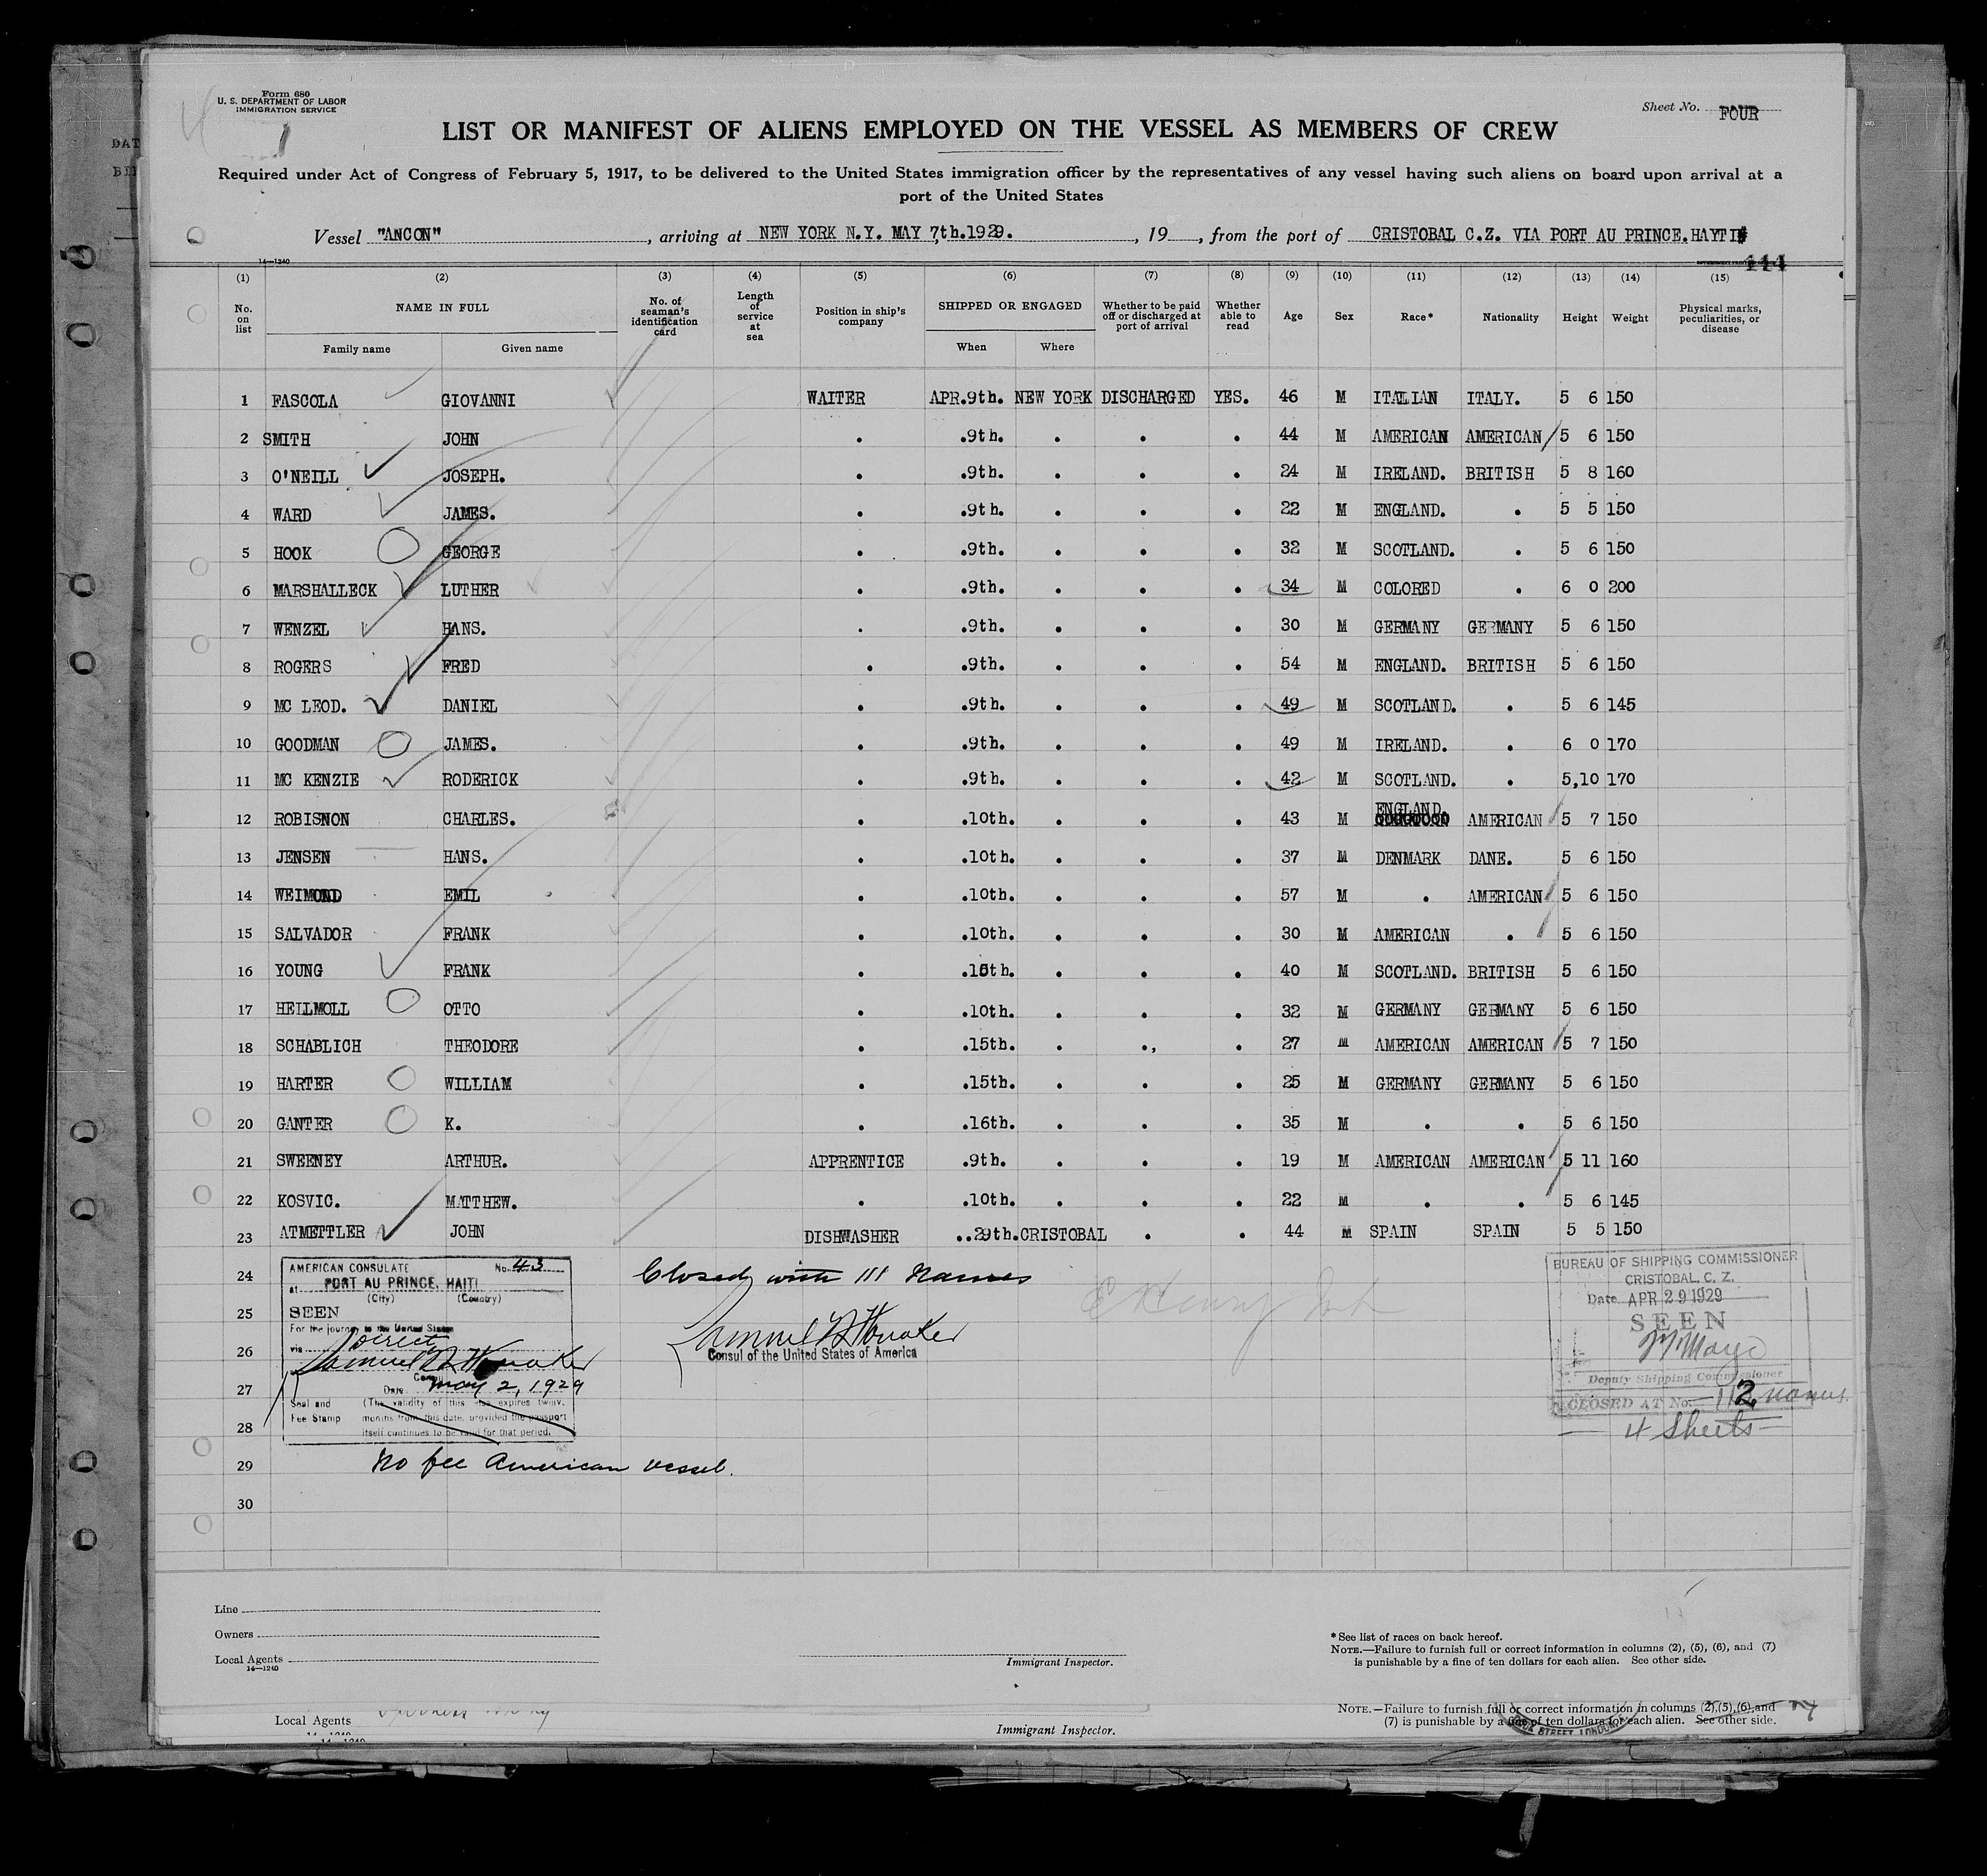 Form 680
U. S. DEPARTMENT OF LABOR
IMMIGRATION SERVICE
Sheet No. FOUR
LIST OR MANIFEST OF ALIENS EMPLOYED ON THE VESSEL AS MEMBERS OF CREW
Required under Act of Congress of February 5, 1917, to be delivered to the United States immigration officer by the representatives of any vessel having such aliens on board upon arrival at a
port of the United States
Vessel "ANCON", arriving at NEW YORK N.Y. MAY 7th.1929., 19, from the port of CRISTOBAL C.Z. VIA PORT AU PRINCE.HAYTI
14—1240
(1) (2) (3) (4) (5) (6) (7) (8) (9) (10) (11) (12) (13) (14) (15)
No. on list NAME IN FULL No. of seaman's identification card Length of service at sea Position in ship's company SHIPPED OR ENGAGED Whether to be paid off or discharged at port of arrival Whether able to read Age Sex Race* Nationality Height Weight Physical marks, peculiarities, or disease
Family name Given name When Where
1 FASCOLA GIOVANNI WAITER APR.9th. NEW YORK DISCHARGED YES. 46 M ITALIAN ITALY. 5 6 150
2 SMITH JOHN . .9th. . . . 44 M AMERICAN AMERICAN 5 6 150
3 O'NEILL JOSEPH. . .9th. . . . 24 M IRELAND. BRITISH 5 8 160
4 WARD JAMES. . .9th. . . . 22 M ENGLAND. . 5 5 150
5 HOOK GEORGE . .9th. . . . 32 M SCOTLAND. . 5 6 150
6 MARSHALLECK LUTHER . .9th. . . . 34 M COLORED . 6 0 200
7 WENZEL HANS. . .9th. . . . 30 M GERMANY GERMANY 5 6 150
8 ROGERS FRED . .9th. . . . 54 M ENGLAND. BRITISH 5 6 150
9 MC LEOD. DANIEL . .9th. . . . 49 M SCOTLAND. . 5 6 145
10 GOODMAN JAMES. . .9th. . . . 49 M IRELAND. . 6 0 170
11 MC KENZIE RODERICK . .9th. . . . 42 M SCOTLAND. . 5,10 170
12 ROBISNON CHARLES. . .10th. . . . 43 M ENGLAND. AMERICAN 5 7 150
13 JENSEN HANS. . .10th. . . . 37 M DENMARK DANE. 5 6 150
14 EMIL . .10th. . . . 57 M . AMERICAN 5 6 150
15 SALVADOR FRANK . .10th. . . . 30 M AMERICAN . 5 6 150
16 YOUNG FRANK . . . . 40 M SCOTLAND. BRITISH 5 6 150
17 HELLMOLL OTTO . .10th. . . . 32 M GERMANY GERMANY 5 6 150
18 SCHABLICH THEODORE . .15th. . ., . 27 M AMERICAN AMERICAN 5 7 150
19 HARTER WILLIAM . .15th. . . . 25 M GERMANY GERMANY 5 6 150
20 GANTER K. . .16th. . . . 35 M . . 5 6 150
21 SWEENEY ARTHUR. APPRENTICE .9th. . . . 19 M AMERICAN AMERICAN 5 11 160
22 KOSVIC. MATTHEW. . .10th. . . . 22 M . . 5 6 145
23 ATMETTLER JOHN DISHWASHER ..29th. CRISTOBAL . . 44 M SPAIN SPAIN 5 5 150
24
25
26
27
28
29
30
AMERICAN CONSULATE No. 43
at PORT AU PRINCE, HAITI
(City) (Country)
SEEN
For the journey to the United States
via Direct
Samuel W Honaker
Consul
Date May 2, 1929
Seal and Fee Stamp
(The validity of this visa expires twelve
months from this date, provided the passport
itself continues to be valid for that period.
No fee American vessel.
Closed with 111 names
Samuel W Honaker
Consul of the United States of America
BUREAU OF SHIPPING COMMISSIONER
CRISTOBAL, C. Z.
Date APR 29 1929
SEEN
Deputy Shipping Commissioner
CLOSED AT No. 112 names.
4 Sheets
Line
Owners
Local Agents
14—1240
Immigrant Inspector.
*See list of races on back hereof.
NOTE.—Failure to furnish full or correct information in columns (2), (5), (6), and (7)
is punishable by a fine of ten dollars for each alien. See other side.
Local Agents
14—1240
Immigrant Inspector.
NOTE.—Failure to furnish full or correct information in columns (2),(5),(6),and
(7) is punishable by a fine of ten dollars for each alien. See other side.